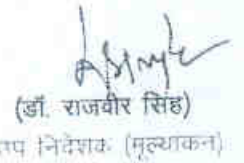 (डॉ. राजवीर सिंह)
उप निदेशक (मूल्यांकन)